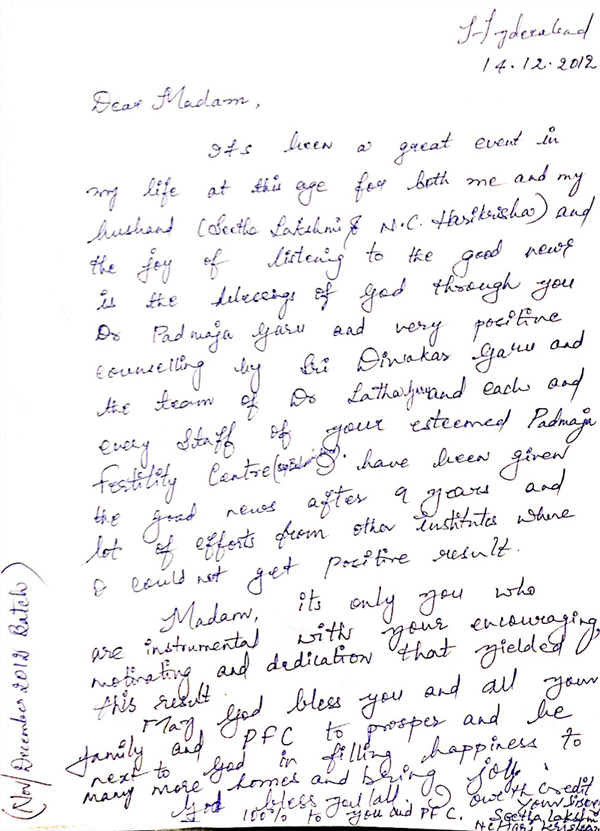 Hyderabad
14.12.2012
Dear Madam,
Its been a great event in
my life at this age for both me and my
husband (Seetha Lakshmi & N.C. Harikrishna) and
the joy of listening to the good news
is the blessings of God through you
Dr Padmaja Garu and very positive
counselling by Sri Diwakar Garu and
the team of Dr Latha Garu and each and
every Staff of your esteemed Padmaja
Fertility Centre . have been given
the good news after 9 years and
lot of efforts from other institutes where
I could not get positive result.
Madam, its only you who
are instrumental with your encouraging,
motivating and dedication that yielded
this result.
May God bless you and all your
family and PFC to prosper and be
next to God in filling happiness to
many more homes and bring joy.
God bless you all. I owe the credit
100% to you and PFC.
Yours
Seetha Lakshmi
(Nov/December 2012 Batch)